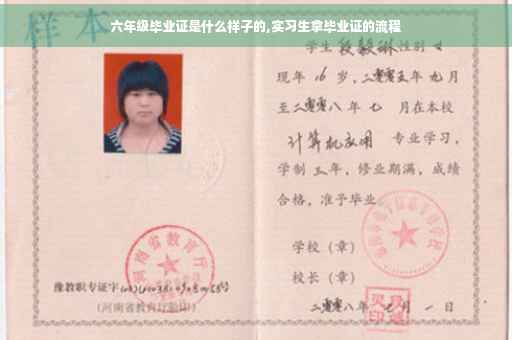 六年级毕业证是什么样子的,实习生拿毕业证的流程
样本
学生段毅琳性别女
现年16岁,二零零五年九月
至二零零八年七月在本校
计算机应用专业学习,
学制三年,修业期满,成绩
合格,准予毕业。
学校(章)
校长(章)
二零零八年七月一日
河南省教育厅
豫教职专证字
(河南省教育厅验印)